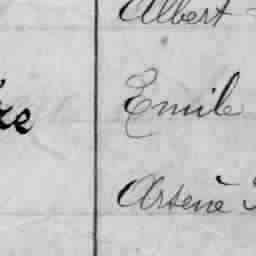 Albert
Emile
Arsène